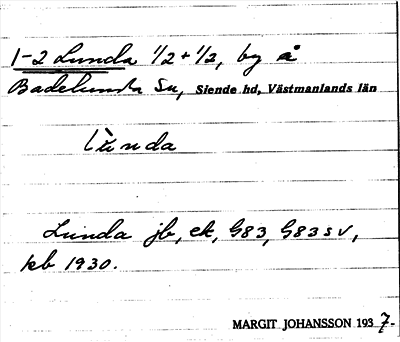 1-2 Lunda 1/2 + 1/2, by å
Badelunda Sn, Siende hd, Västmanlands län
Lunda
Lunda jb, ek, G83, G83sv,
kb 1930.
MARGIT JOHANSSON 1937-